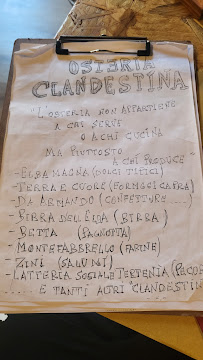 OSTERIA
CLANDESTINA
"L'OSTERIA NON APPARTIENE
A CHI SERVE
O A CHI CUCINA
MA PIUTTOSTO
A CHI PRODUCE
- ELBA MAGNA (DOLCI TIPICI)
- TERRA E CUORE (FORMAGGI CAPRA)
- DA ARMANDO (CONFETTURE.....)
- BIRRA DELL'ELBA (BIRRA)
- BETTA (PAGNOTTA)
- MONTEFABBRELLO (FARINE)
- ZINI (SALUMI)
- LATTERIA SOCIALE TERTENIA (PECOR
.... E TANTI ALTRI "CLANDESTIN